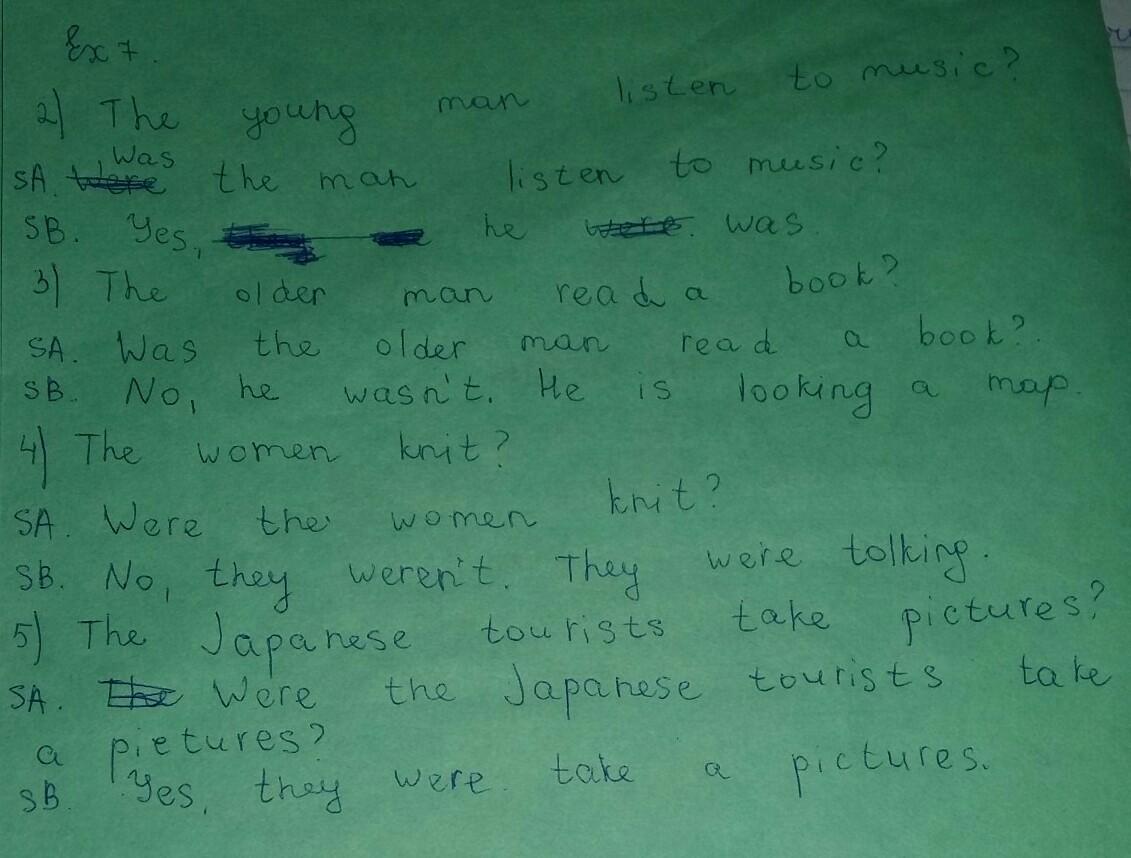 Ex 7.
2) The young man listen to music?
Was
SA. Were the man listen to music?
SB. Yes, he were. was.
3) The older man read a book?
SA. Was the older man read a book?.
SB. No, he wasn't. He is looking a map.
4) The women knit?
SA. Were the women knit?
SB. No, they weren't. They were tolking.
5) The Japanese tourists take pictures?
SA. The Were the Japanese tourists take
a pietures?
SB. Yes, they were. take a pictures.